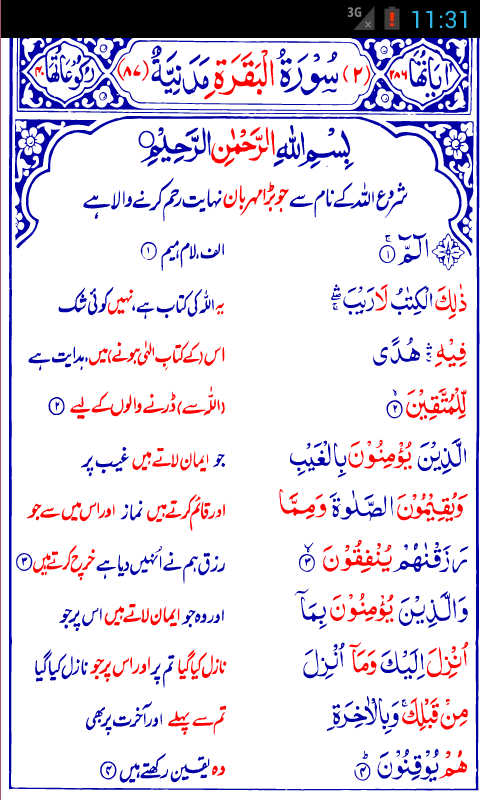 3G 11:31
اٰیَاتُهَا ٢٨٦ (٢) سُوْرَةُ الْبَقَرَةِ مَدَنِیَّةٌ (٨٧) رُكُوْعَاتُهَا ٤٠
بِسْمِ اللّٰهِ الرَّحْمٰنِ الرَّحِیْمِ
شروع اللہ کے نام سے جو بڑا مہربان نہایت رحم کرنے والا ہے
الٓمّٓ ۚ ۝١ الف، لام، میم ۝۱
ذٰلِكَ الْكِتٰبُ لَا رَیْبَ ۛۖۚ یہ اللہ کی کتاب ہے، نہیں کوئی شک
فِیْهِ ۛۚ هُدًی اس (کے کتابِ الٰہی ہونے) میں، ہدایت ہے
لِّلْمُتَّقِیْنَ ۙ ۝٢ (اللہ سے) ڈرنے والوں کے لیے ۝۲
الَّذِیْنَ یُؤْمِنُوْنَ بِالْغَیْبِ جو ایمان لاتے ہیں غیب پر
وَیُقِیْمُوْنَ الصَّلٰوةَ وَمِمَّا اور قائم کرتے ہیں نماز اور اس میں سے جو
رَزَقْنٰهُمْ یُنْفِقُوْنَ ۙ ۝٣ رزق ہم نے اُنہیں دیا ہے خرچ کرتے ہیں ۝۳
وَالَّذِیْنَ یُؤْمِنُوْنَ بِمَاۤ اور وہ جو ایمان لاتے ہیں اس پر جو
اُنْزِلَ اِلَیْكَ وَمَاۤ اُنْزِلَ نازل کیا گیا تم پر اور اس پر جو نازل کیا گیا
مِنْ قَبْلِكَ ۚ وَبِالْاٰخِرَةِ تم سے پہلے اور آخرت پر بھی
هُمْ یُوْقِنُوْنَ ؕ ۝٤ وہ یقین رکھتے ہیں ۝۴